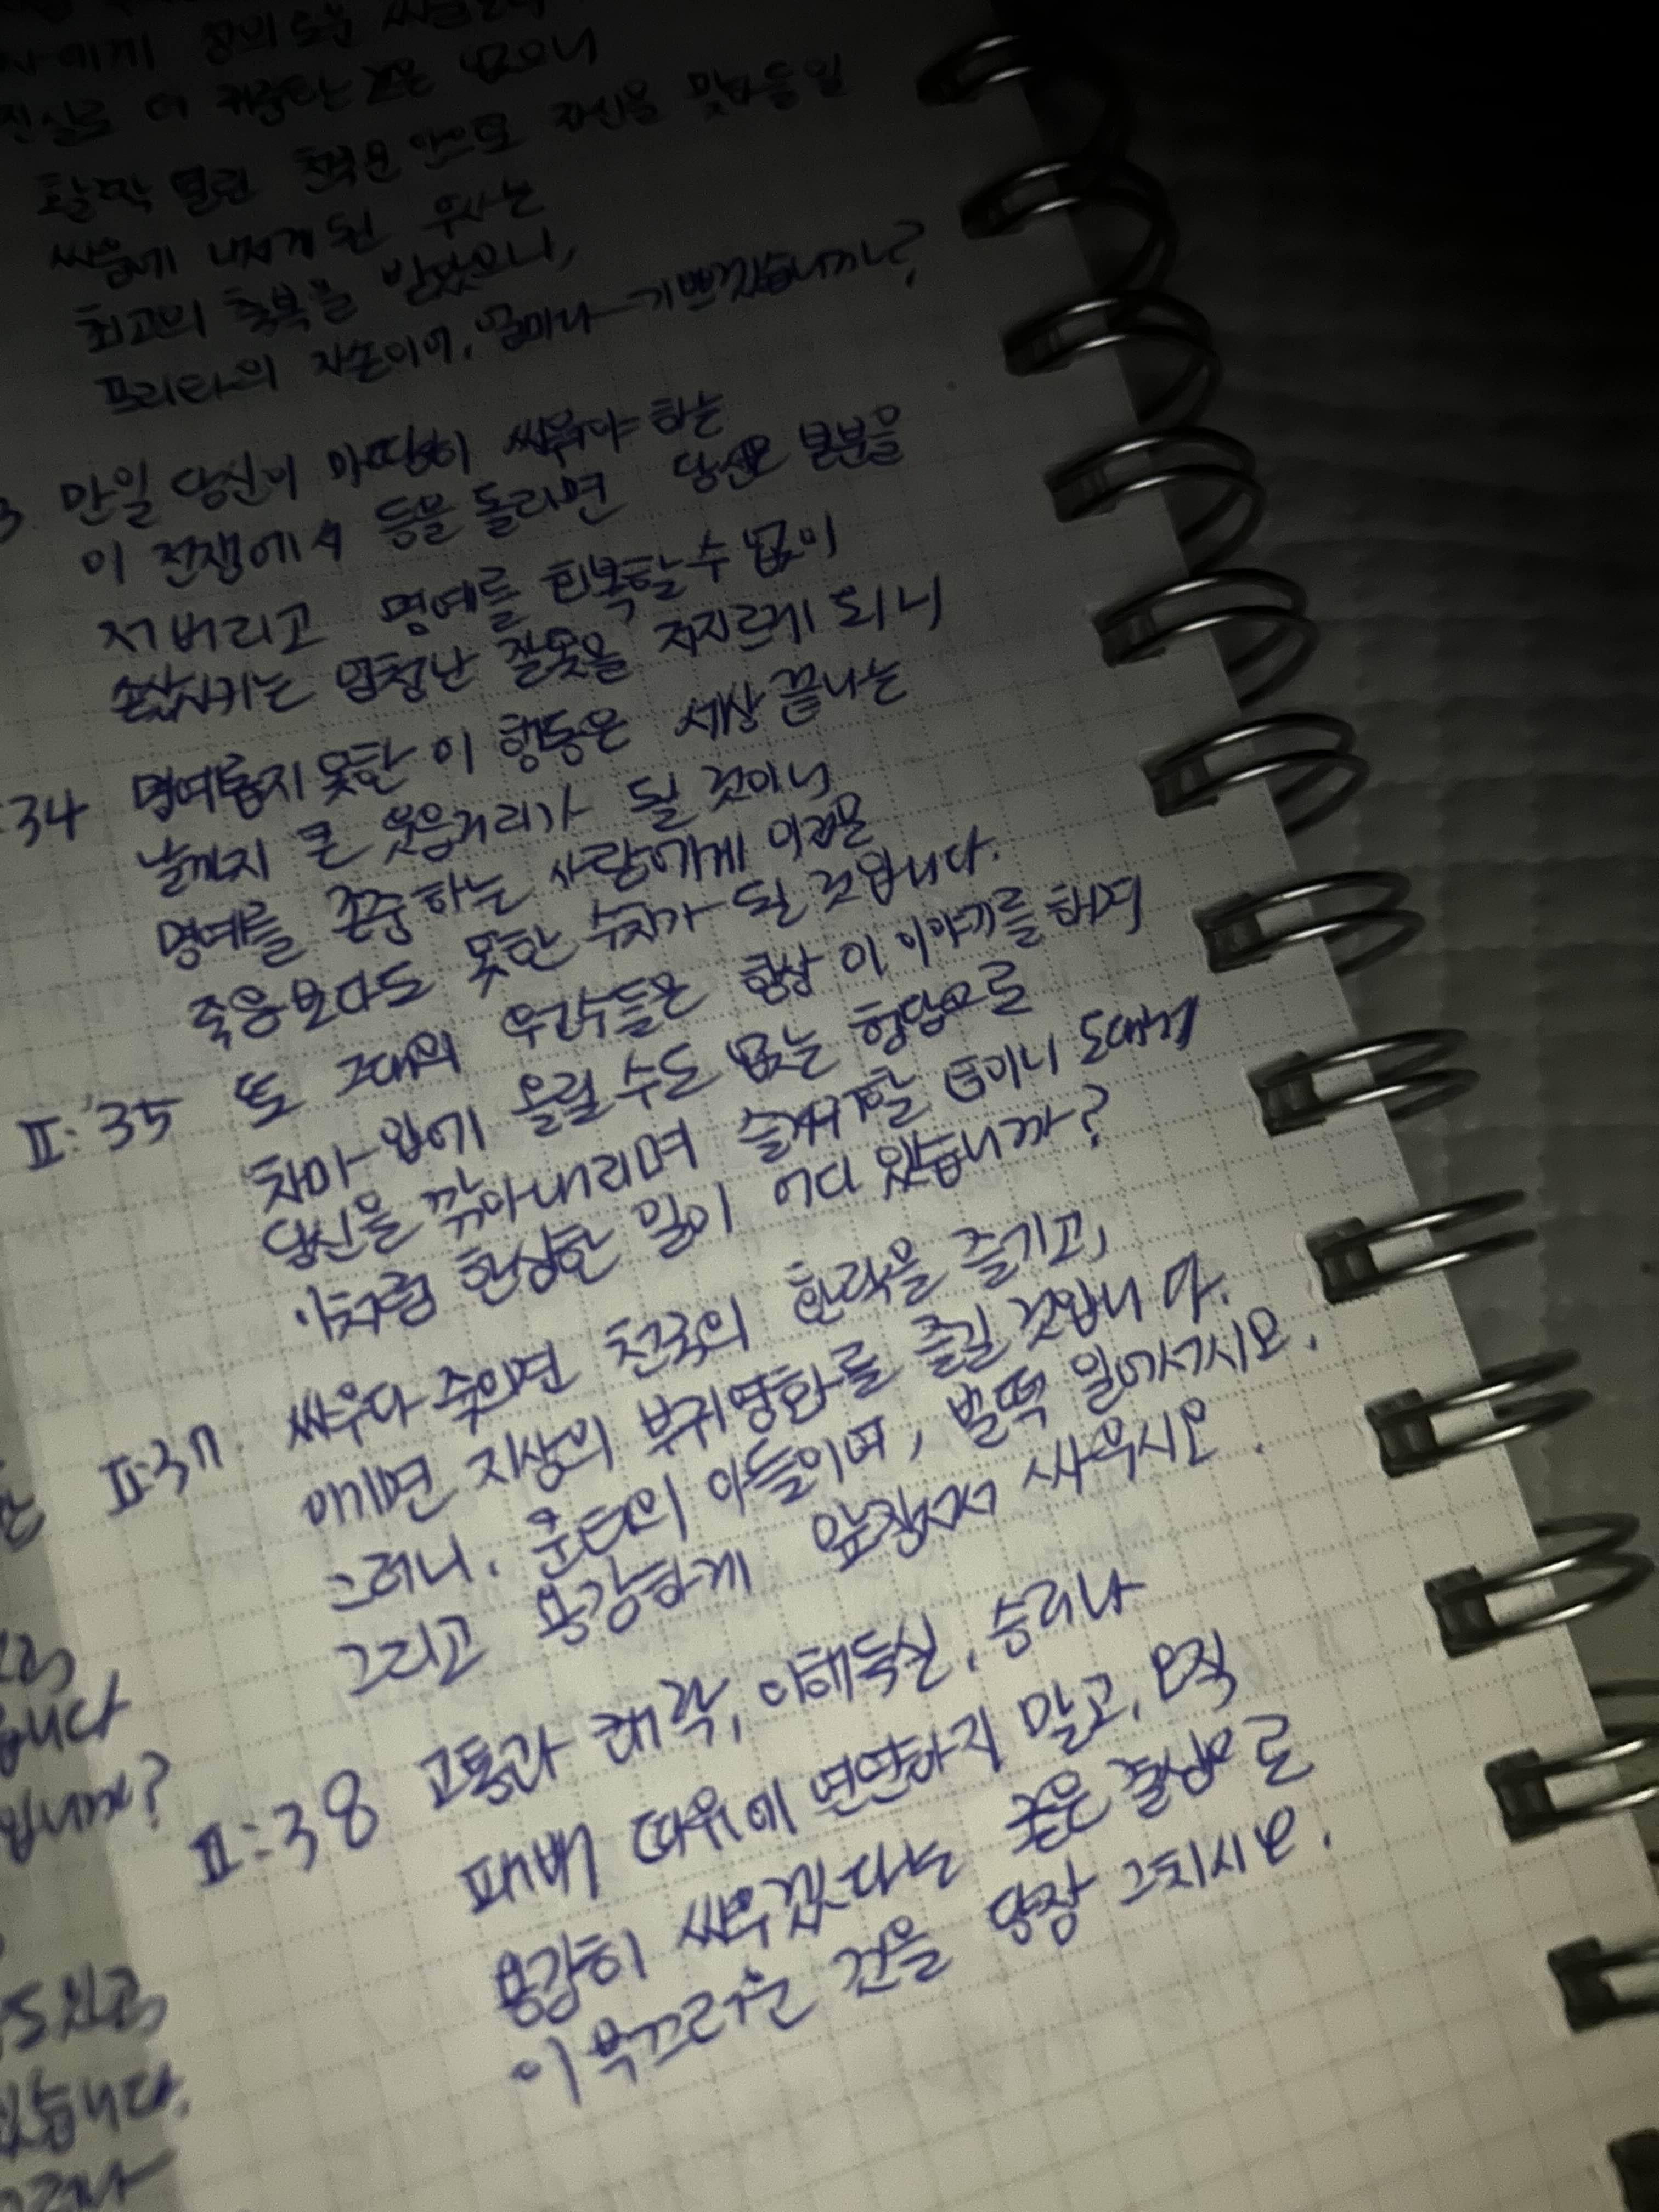 진실로 더
활짝 열린 천국문 안으로 자신을 맞아들일
싸움에 나서게 된 무사는
최고의 축복을 받았으니,
프리타의 자손이여, 얼마나 기쁘겠습니까?
만일 당신이 마땅히 싸워야 하는
이 전쟁에서 등을 돌리면 당신은 본분을
저버리고 명예를 회복할 수 없이
손상시키는 엄청난 잘못을 저지르게 되니
34 명예롭지 못한 이 행동은 세상 끝나는
날까지 큰 웃음거리가 될 것이니
명예를 존중하는 사람에게 이것은
죽음보다도 못한 수치가 될 것입니다.
II:35 또 그대의 원수들은 항상 이 이야기를 하며
차마 입에 올릴 수도 없는 험담으로
당신을 깎아내리며 즐거워할 터이니 도대체
이처럼 한심한 일이 어디 있습니까?
II:37 싸우다 죽으면 천국의 환락을 즐기고,
이기면 지상의 부귀영화를 즐길 것입니다.
그러니, 쿤티의 아들이여, 벌떡 일어서시오.
그리고 용감하게 앞장서서 싸우시오.
II:38 고통과 쾌락, 이해득실, 승리나
패배 따위에 연연하지 말고, 오직
용감히 싸우겠다는 굳은 결심으로
이 부끄러운 건을 당장 그치시오.
습니다
입니까?
있습니다.